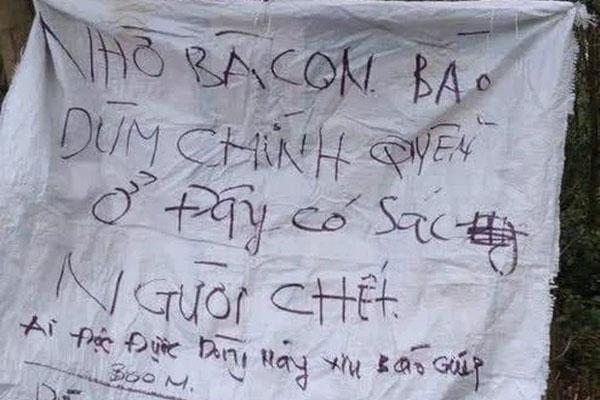 NHỜ BÀ CON. BÁO
DÙM CHÍNH QUYỀN
Ở ĐÂY CÓ SÁC
NGƯỜI CHẾT.
Ai Đọc Được Dòng Này Xin Báo Giúp
300 M.